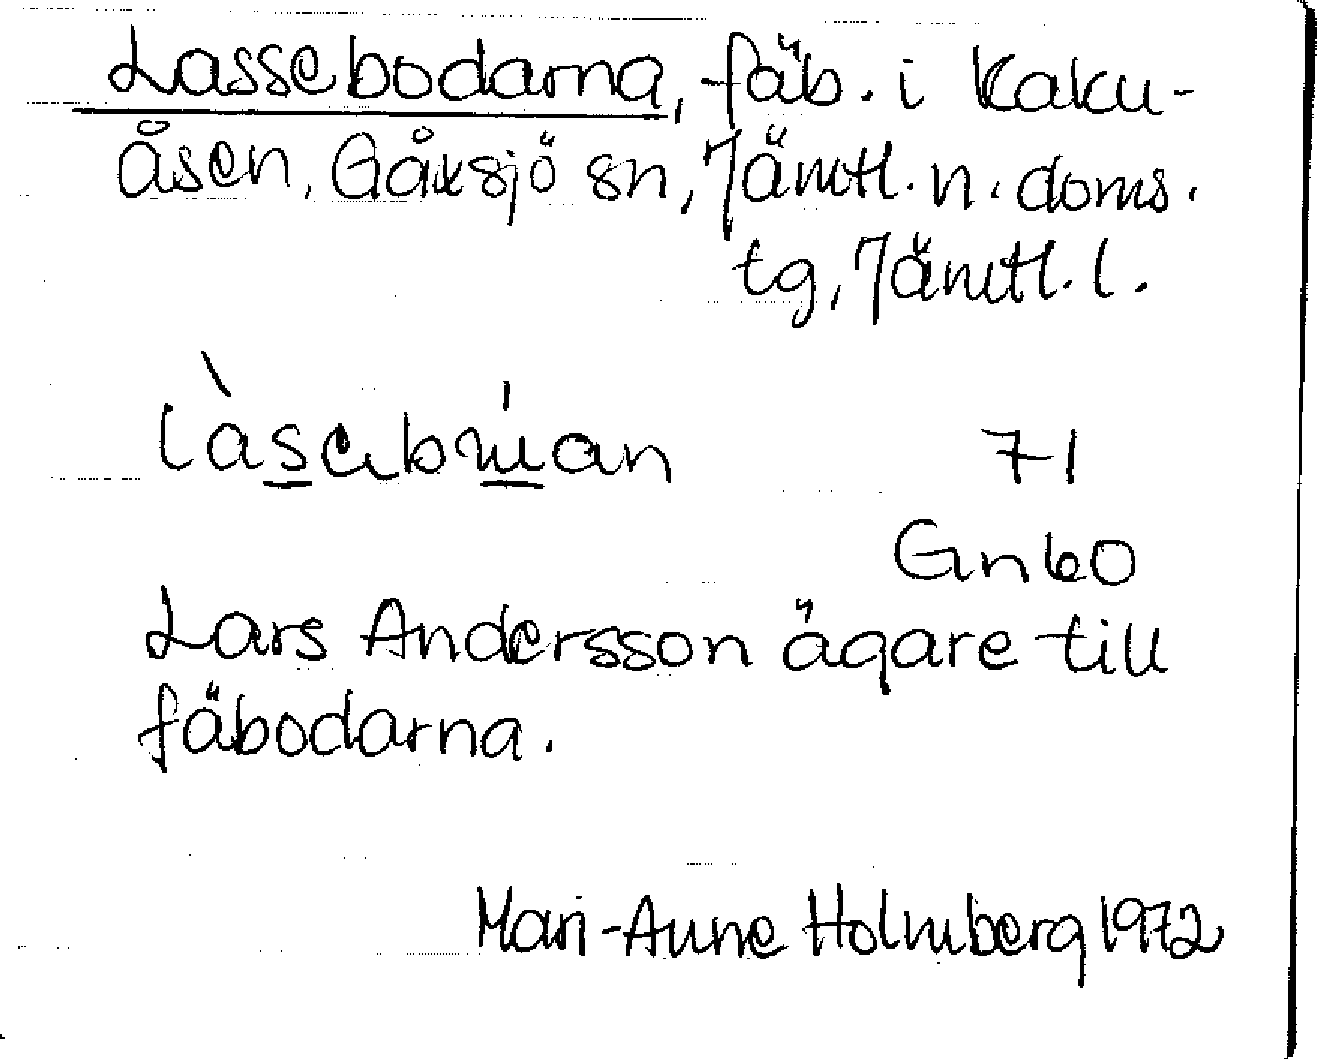 Lassebodarna, fäb. i Kaku-
åsen, Gåxsjö sn, Jämtl. n. doms.
tg, Jämtl. l.
71
Gnbo
Lars Andersson ägare till
fäbodarna.
Mari-Anne Holmberg 1972